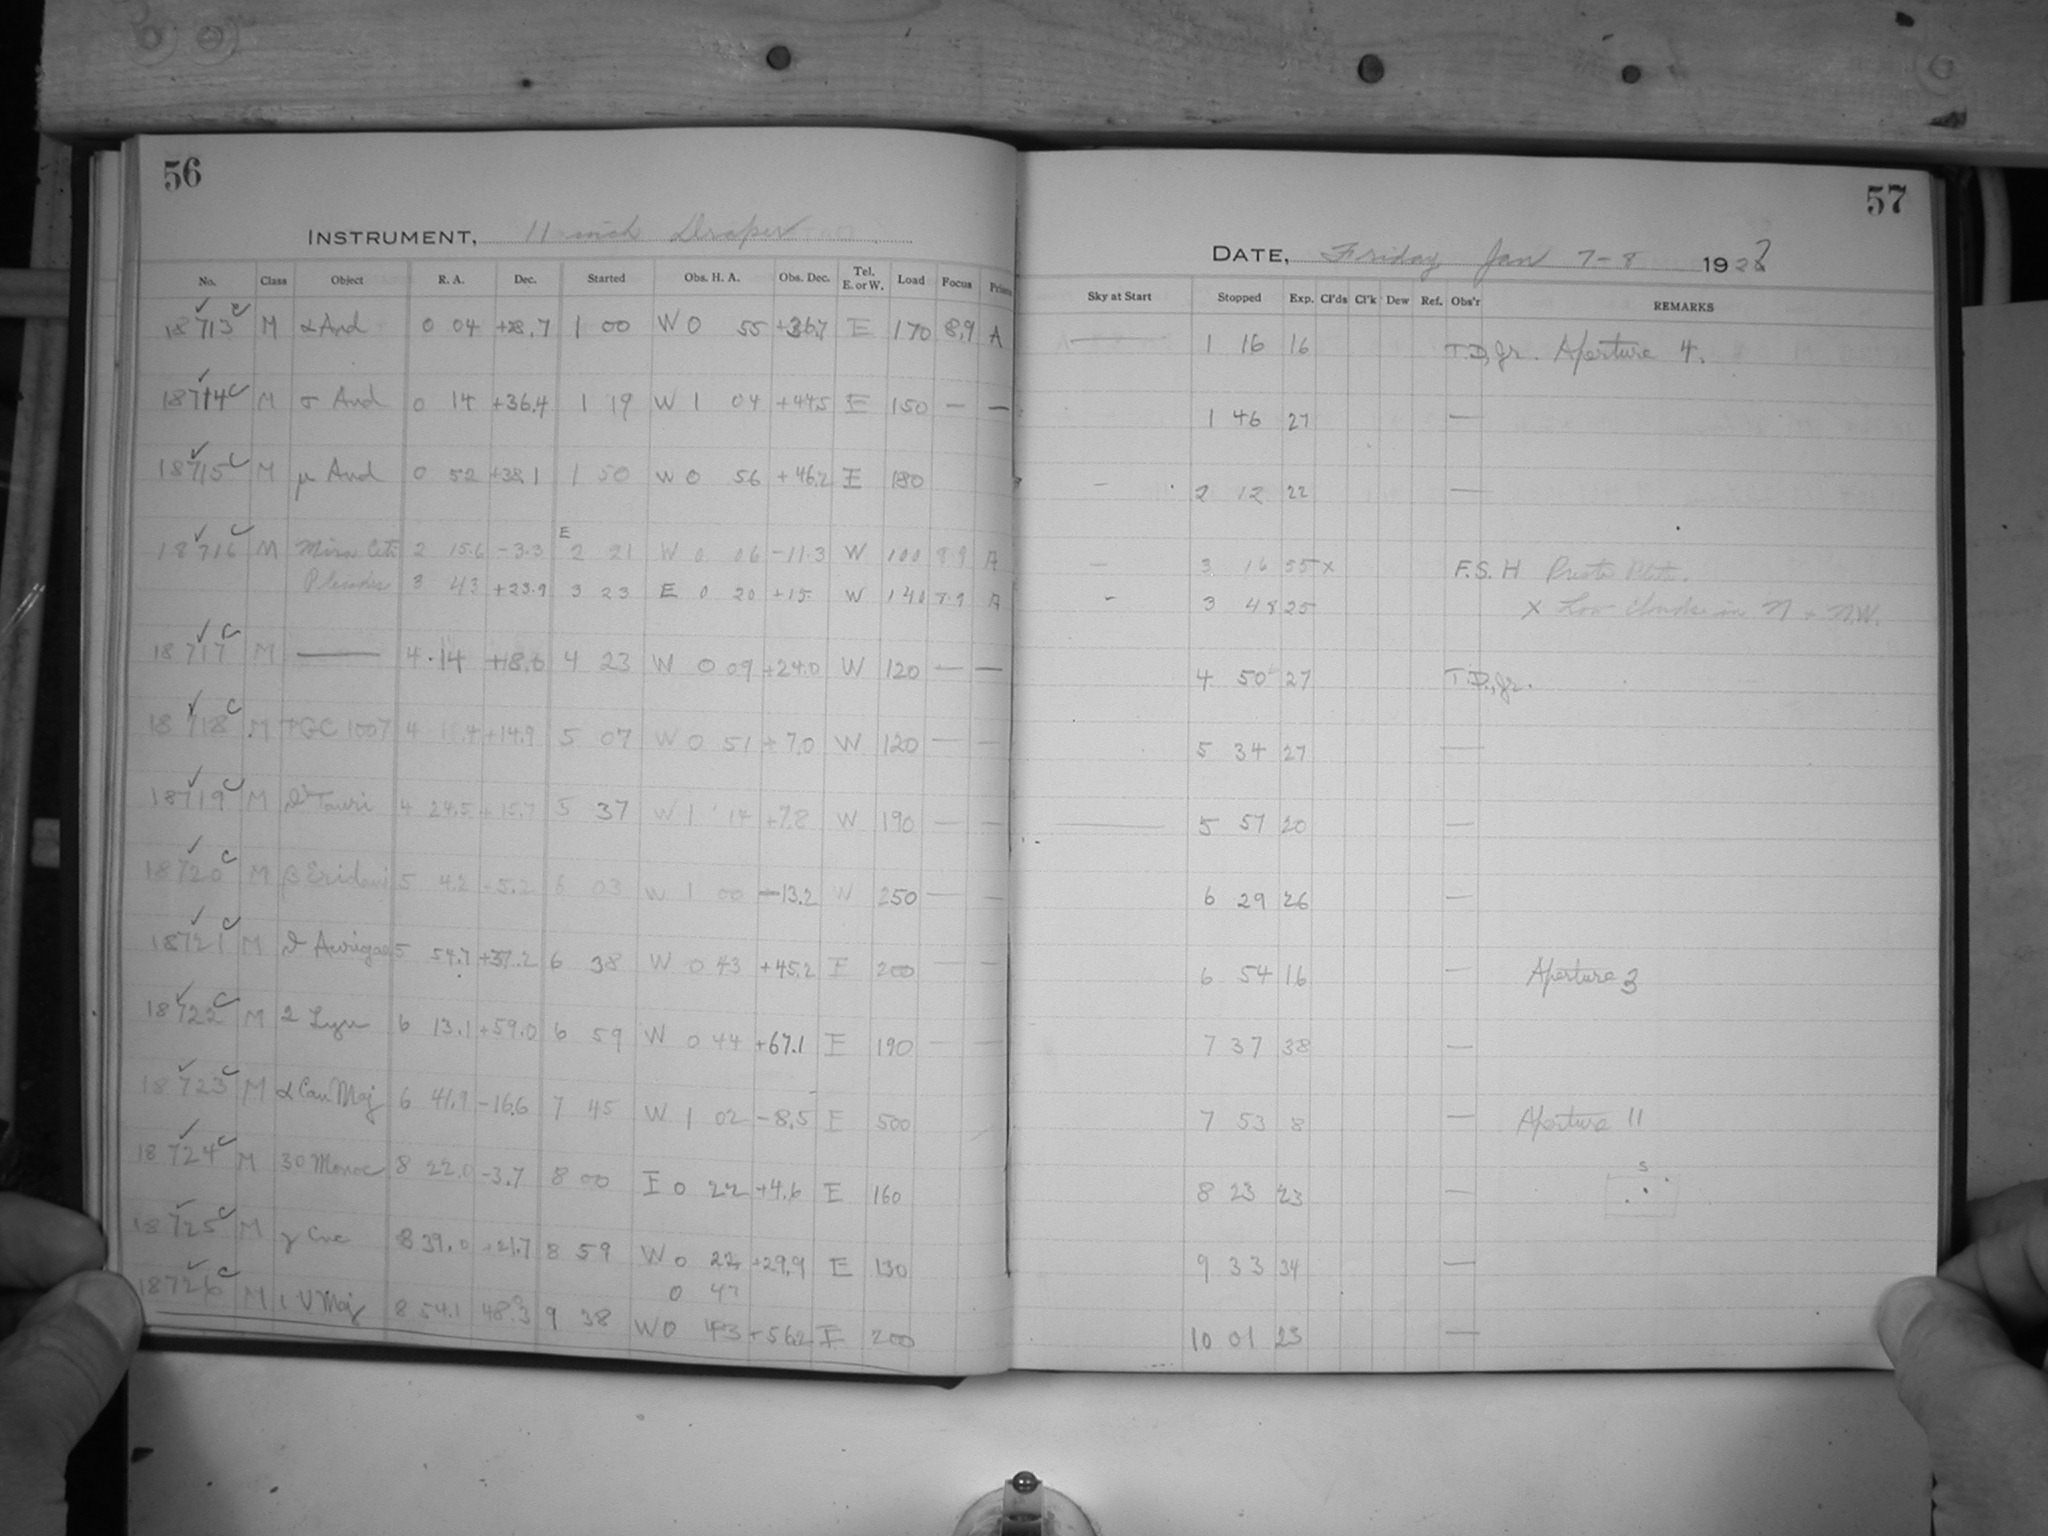 56
INSTRUMENT, 11 inch Draper
No. Class Object R. A. Dec. Started Obs. H. A. Obs. Dec. Tel. E. or W. Load Focus Prism
18713 M α And 0 04 +28.7 1 00 W 0 55 +36.7 E 170 8.9 A
18714 M σ And 0 14 +36.4 1 19 W 1 04 +44.5 E 150 — —
18715 M μ And 0 52 +38.1 1 50 W 0 56 +46.2 E 180
18716 M Mira Ceti 2 15.6 -3.3 E 2 21 W 0 06 -11.3 W 100 8.9 A
Pleiades 3 43 +23.9 3 23 E 0 20 +15 W 140 8.9 A
18717 M — 4 14 +18.6 4 23 W 0 09 +24.0 W 120 — —
18718 M PGC 1007 4 +14.9 5 07 W 0 51 +7.0 W 120 — —
18719 M Tauri 4 24.5 +15.7 5 37 W 1 14 +7.8 W 190 — —
18720 M β Eridani 5 4.2 -5.2 6 03 W 1 00 -13.2 W 250 — —
18721 M Aurigae 5 54.7 +37.2 6 38 W 0 43 +45.2 E 200 — —
18722 M 2 Lyn 6 13.1 +59.0 6 59 W 0 44 +67.1 E 190 — —
18723 M α Can Maj 6 41.9 -16.6 7 45 W 1 02 -8.5 E 500
18724 M 30 Monoc 8 22.0 -3.7 8 00 E 0 22 +4.6 E 160
18725 M γ Cnc 8 39.0 +21.7 8 59 W 0 22 +29.9 E 130
0 47
18726 M ι U Maj 8 54.1 48.3 9 38 W 0 43 +56.2 E 200
57
DATE, Friday Jan 7-8 192
Sky at Start Stopped Exp. Cl'ds Cl'k Dew Ref. Obs'r REMARKS
— 1 16 16 T.D., Jr. Aperture 4.
1 46 27 —
— 2 12 22 —
— 3 16 55 x F.S.H Plate.
- 3 48 25 x Low clouds in N + N.W.
4 50 27 T.D., Jr.
5 34 27 —
— 5 57 20 —
6 29 26 —
6 54 16 — Aperture 3
7 37 38 —
7 53 8 — Aperture 11
8 23 23 — S
9 33 34 —
10 01 23 —